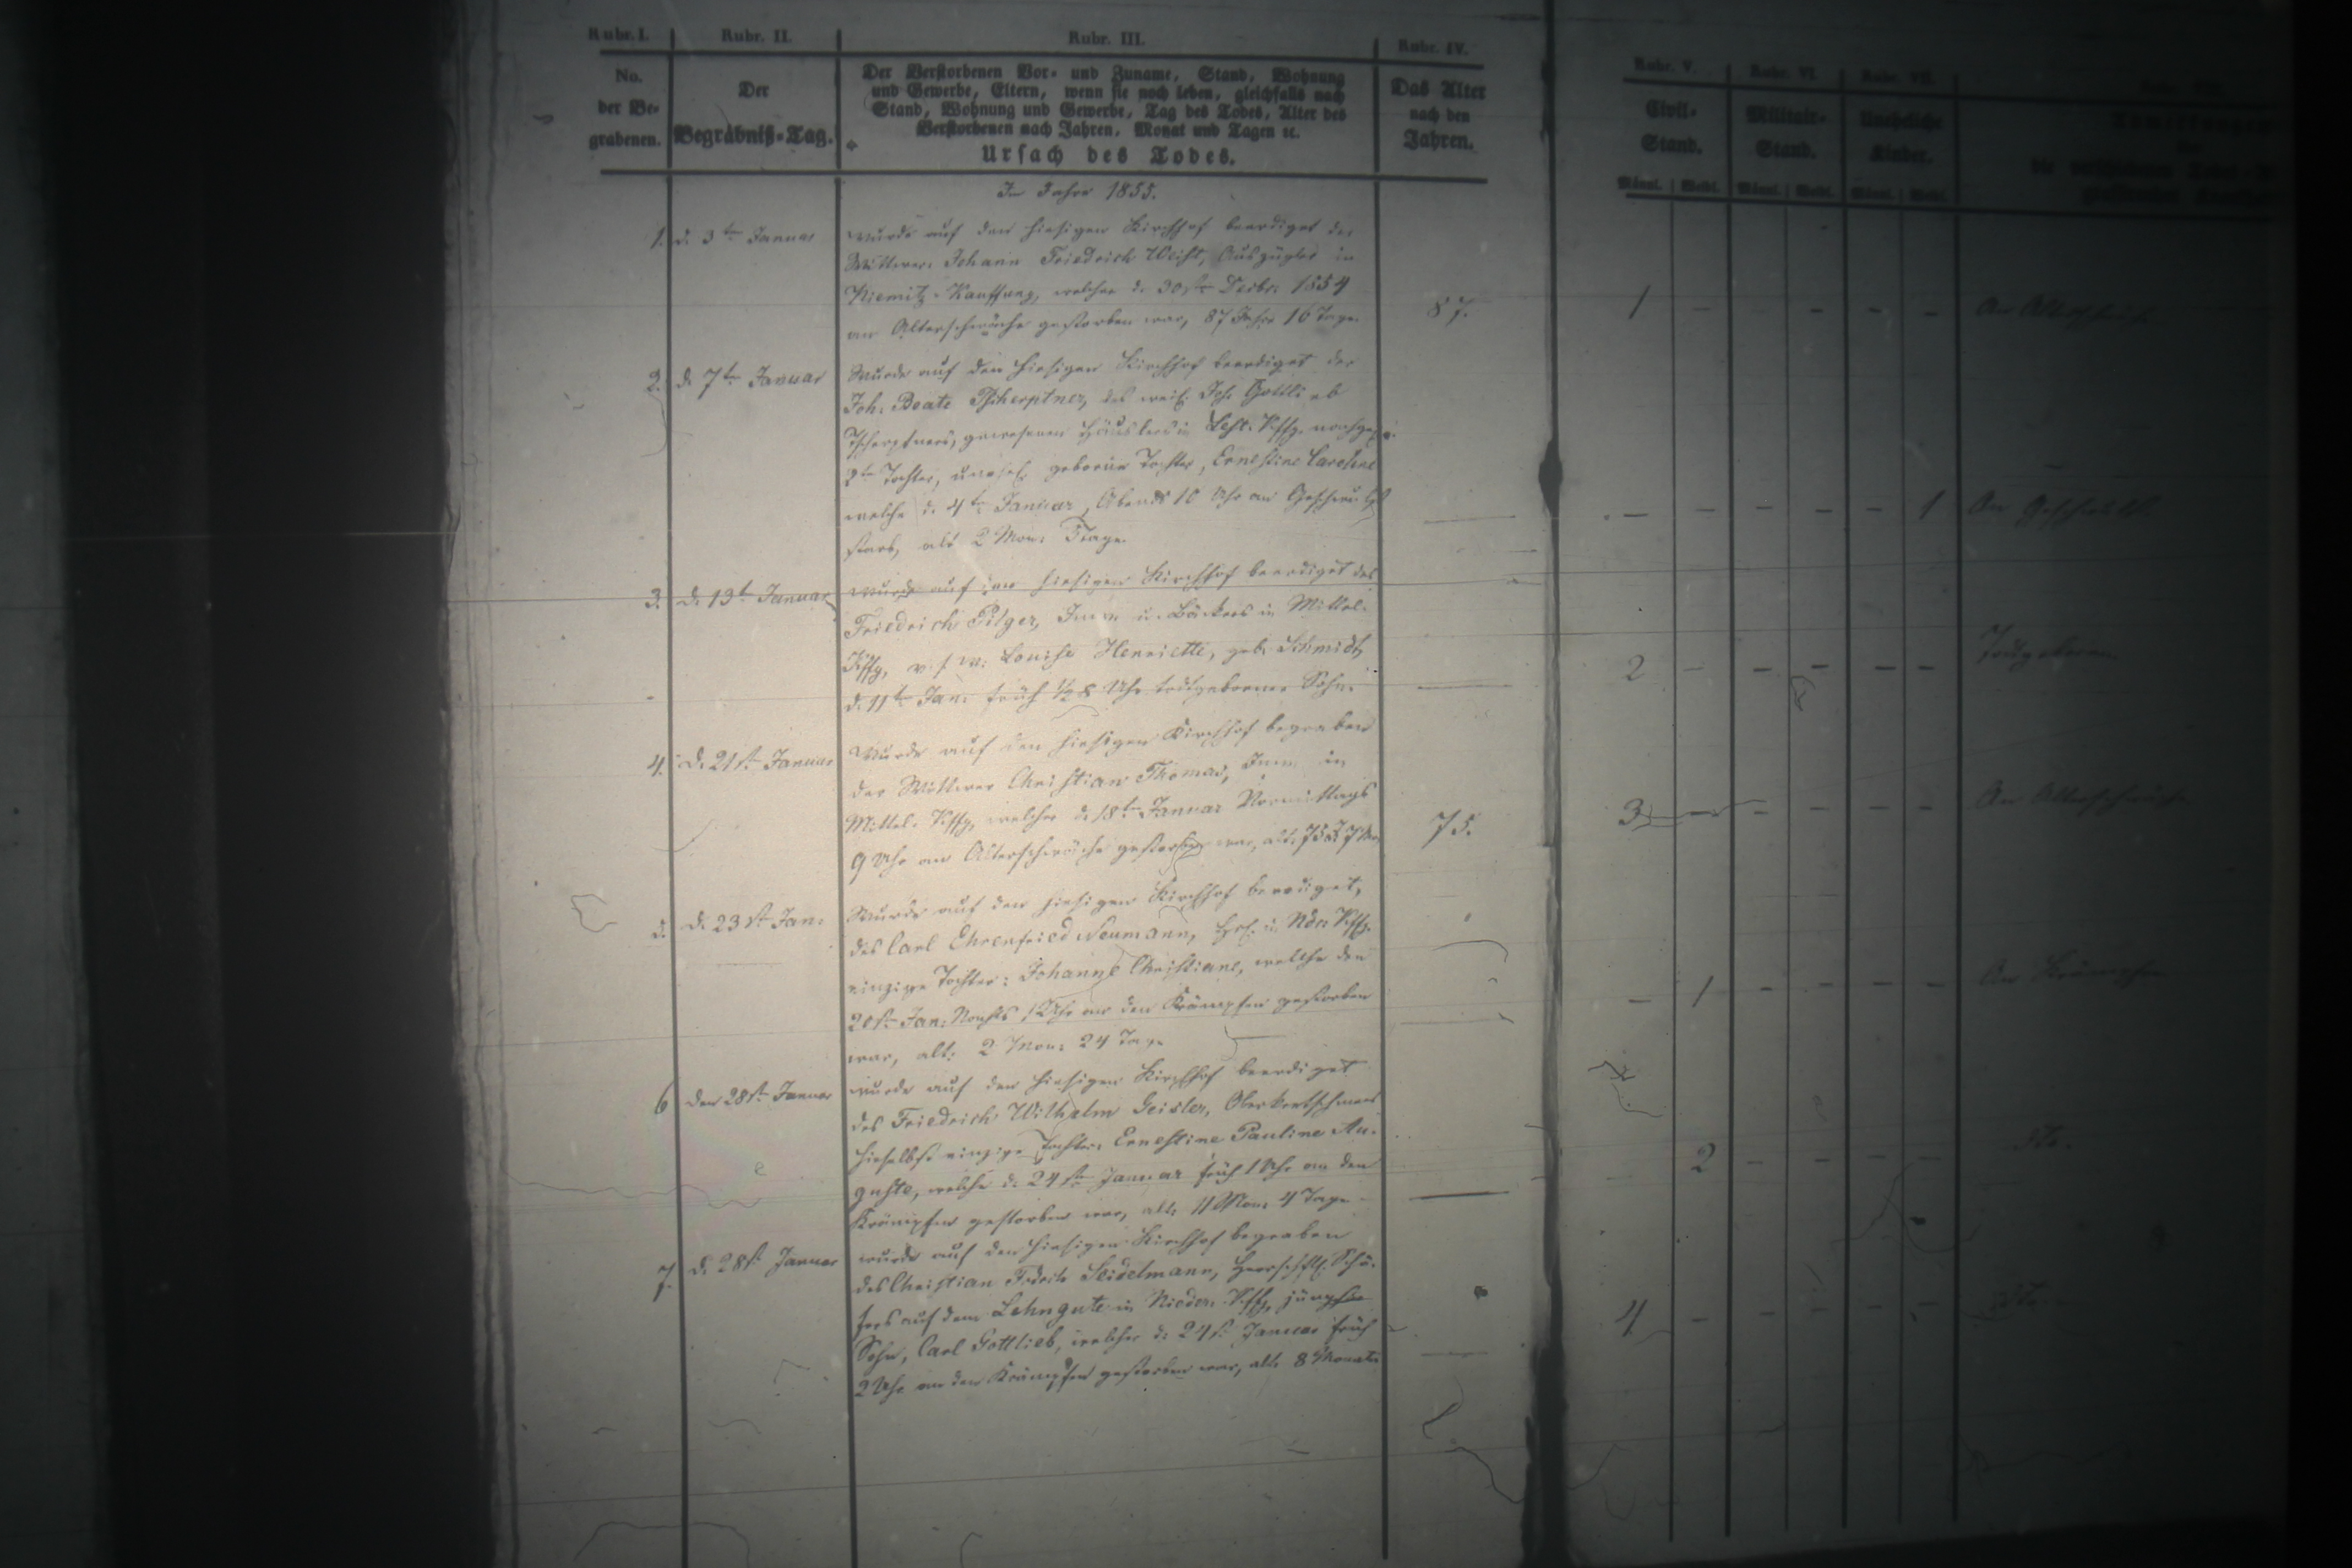 Rubr. I. Rubr. II. Rubr. III. Rubr. IV. Rubr. V. Rubr. VI. Rubr. VII.
No. der Be-grabenen.
Der Begräbniß-Tag.
Der Verstorbenen Vor- und Zuname, Stand, Wohnung
und Gewerbe, Eltern, wenn sie noch leben, gleichfalls nach
Stand, Wohnung und Gewerbe, Tag des Todes, Alter des
Verstorbenen nach Jahren, Monat und Tagen ꝛc.
Ursach des Todes.
Das Alter nach den Jahren.
Civil-Stand.
Militair-Stand.
Uneheliche Kinder.
Männl. Weibl. Männl. Weibl. Männl. Weibl.
Im Jahre 1855.
1. d. 3te Januar wurde auf den hiesigen Kirchhof beerdiget der
Wittwer Johann Friedrich Weist, Auszügler in
Niemitz-Kauffung, welcher d. 30ste Decbr. 1854
an Altersschwäche gestorben war, 87 Jahr 16 Tage 87. 1 – – – – –
2. d. 7te Januar Wurde auf den hiesigen Kirchhof beerdiget der
Joh. Beate Tscherptner, des weil. Joh. Gottlieb
Tscherptners, gewesenen Häuslers in Lest. Kffg.
2te Tochter, unehel. geborne Tochter, Ernestine Caroline
welche d. 4te Januar, Abends 10 Uhr an Geschwulst
starb, alt 2 Mon. Tage – – – – – 1 An Geschwulst
3. d. 13te Januar wurde auf den hiesigen Kirchhof beerdiget des
Friedrich Pilger, Inw. u. Bäckers in Mittel-
Kffg, v. s. W. Louise Henriette, geb. Schmidt,
d. 11te Jan. früh ½8 Uhr todtgeborner Sohn. 2 – – – – – Todtgeboren
4. d. 21st. Januar Wurde auf den hiesigen Kirchhof begraben
der Wittwer Christian Thomas, Inw. in
Mittel-Kffg, welcher d. 18te Januar Vormittags
9 Uhr an Altersschwäche gestorben war, alt. 75 J. 7 Mon 75. 3 – – – – – An Altersschwäche
5. d. 23st. Jan. Wurde auf den hiesigen Kirchhof beerdiget,
des Carl Ehrenfried Neumann, in Ndr. Kffg.
einzige Tochter: Johanne Christiane, welche den
20ste Jan. Nachts Uhr an den Krämpfen gestorben
war, alt. 2 Mon. 24 Tage – 1 – – – – An Krämpfen
6 den 28st. Januar wurde auf den hiesigen Kirchhof beerdiget
des Friedrich Wilhelm Geisler, Oberkretschmers
hieselbst einzige Tochter: Ernestine Pauline Au-
guste, welche d. 24ste Januar früh 1 Uhr an den
Krämpfen gestorben war, alt. 11 Mon. 4 Tage 2 – – – – dto.
7. d. 28st. Januar wurde auf den hiesigen Kirchhof begraben
des Christian Fdrich Seidelmann, Herrschftl. Schä-
fers auf dem Lehngute in Nieder-Kffg, jüngster
Sohn, Carl Gottlieb, welcher d. 24st. Januar früh
2 Uhr an den Krämpfen gestorben war, alt. 8 Monate 4 – – – – – dto.